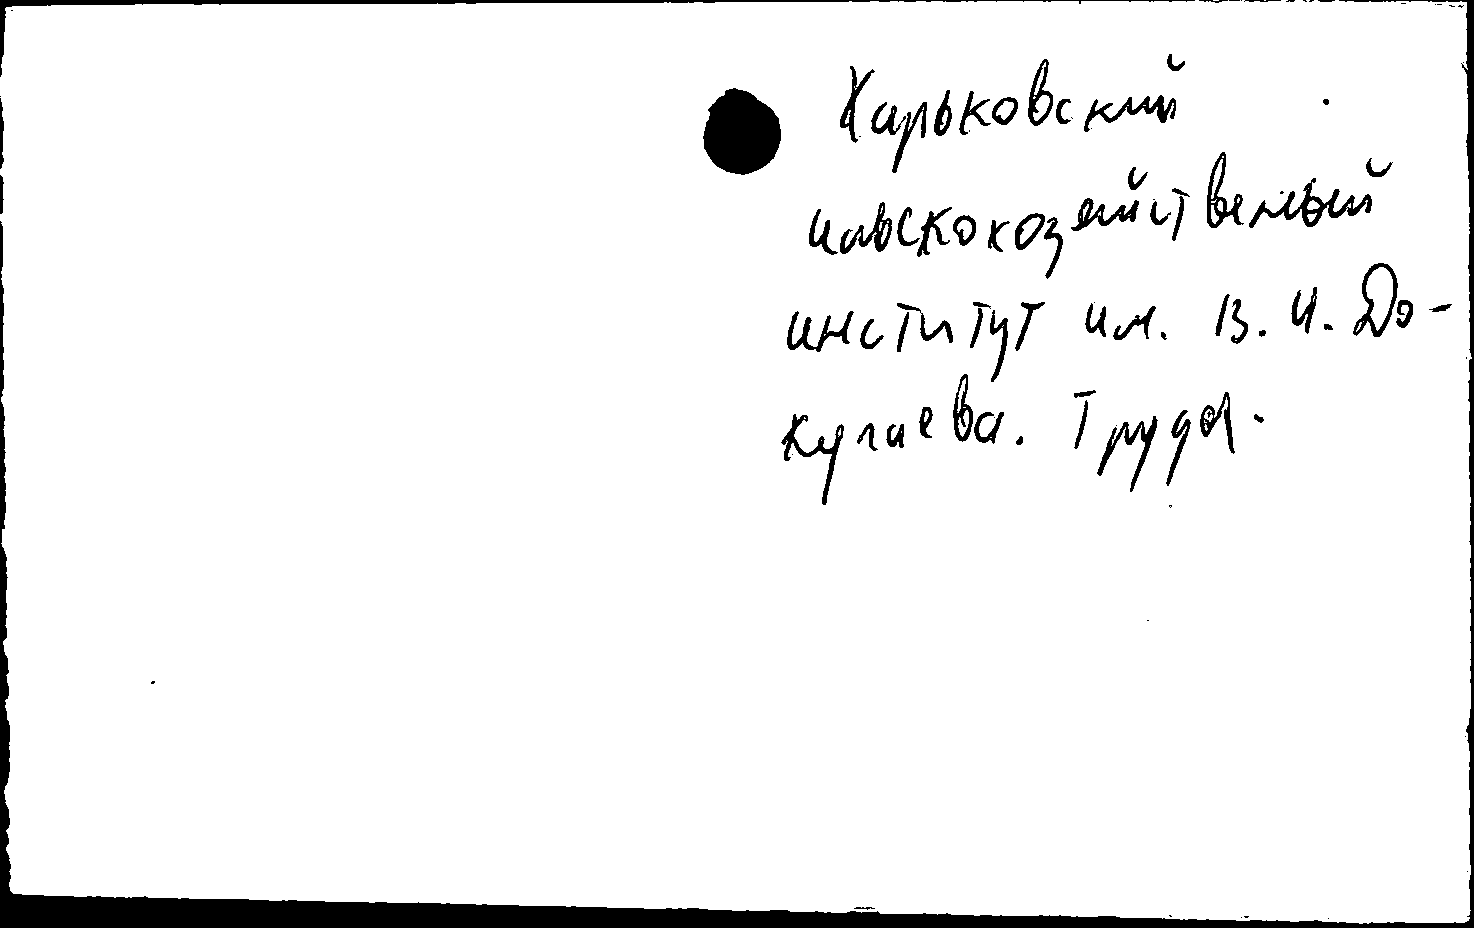 Харьковский
сельскохозяйственный
институт им. В. И. До-
кучаева. Труды.